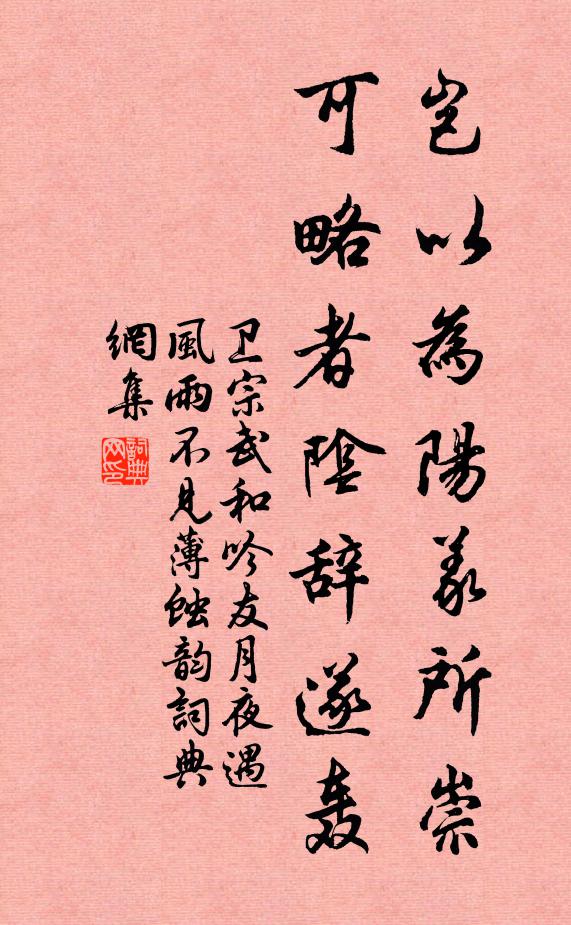 岂以為陽義所崇
可略者陰辞遂轰
卫宗武和吟友月夜遇
風雨不見薄蚀韵詞典
網集
詞典
网印